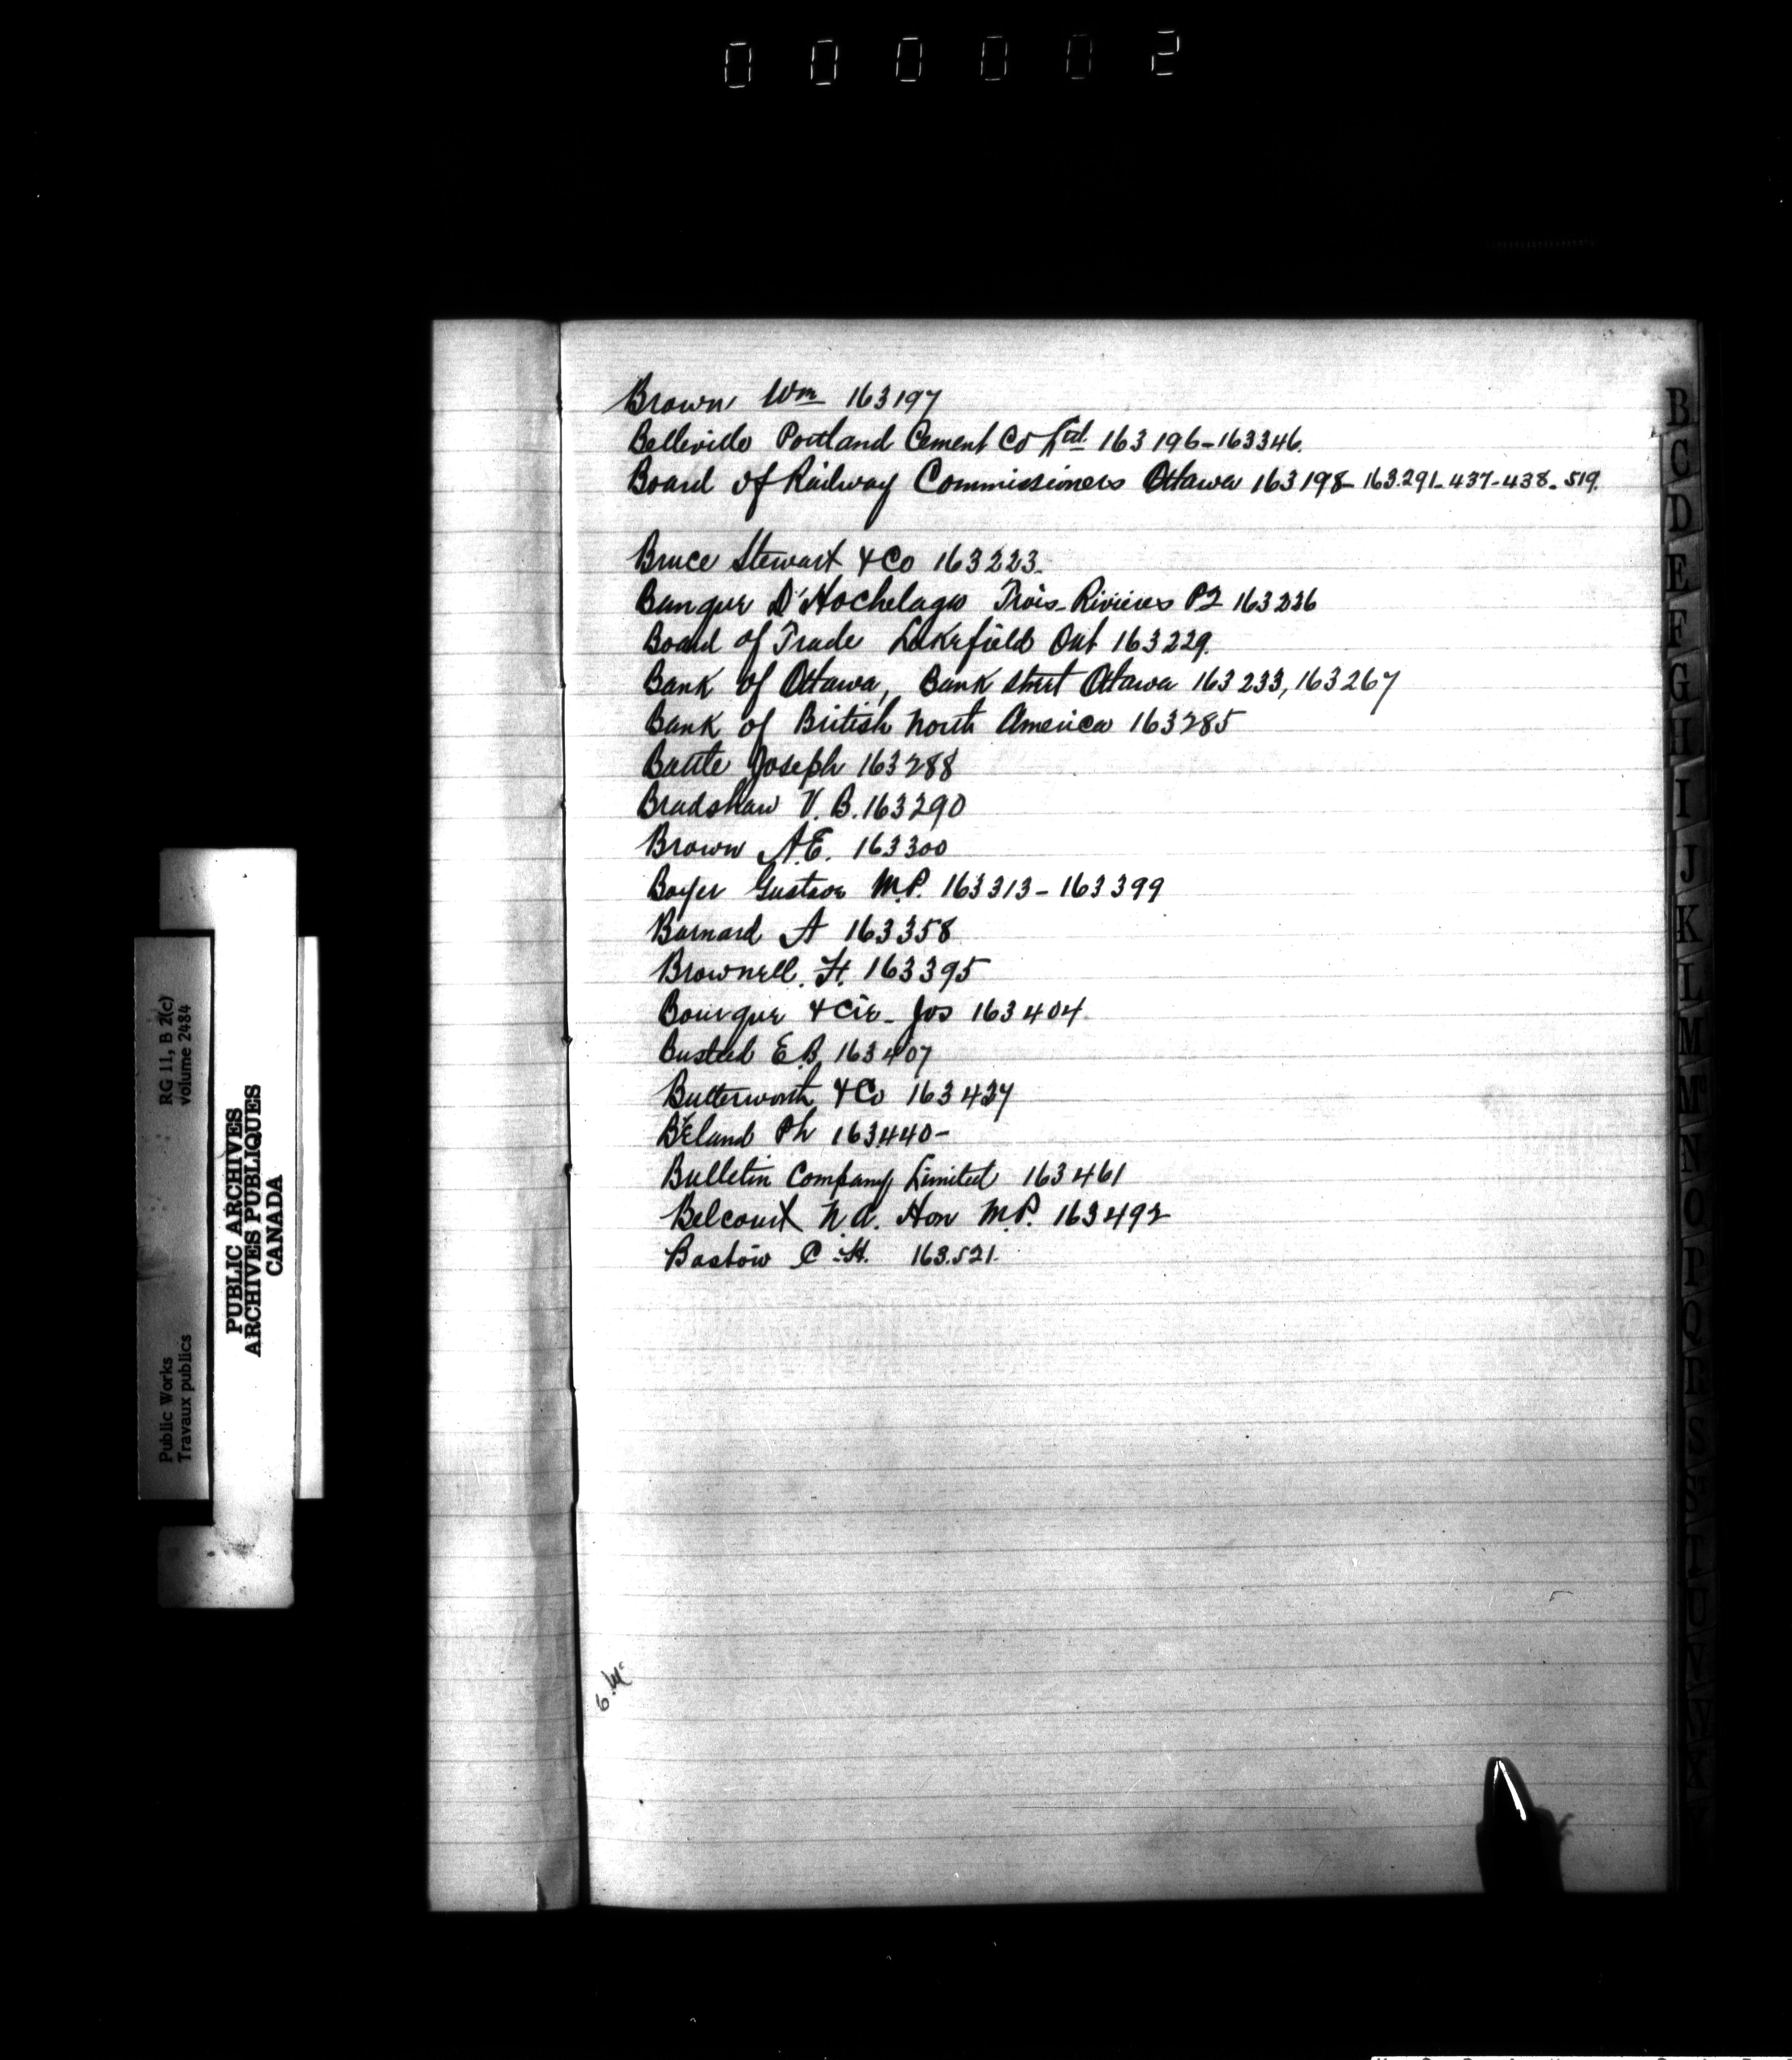 000002
Brown Wm 163197
Belleville Portland Cement Co Ltd. 163196-163346.
Board of Railway Commissioners Ottawa 163198-163.291-437-438-519.
Bruce Stewart & Co 163223-
Banque D'Hochelaga Trois-Rivieres PQ 163226
Board of Trade Lakefield Ont 163229.
Bank of Ottawa, Bank street Ottawa 163233, 163267
Bank of British North America 163285
Battle Joseph 163288
Bradshaw V. B. 163290
Brown A.E. 163300
Boyer Gustave M.P. 163313-163399
Barnard A 163358
Brownell. H. 163395
Bourque & Cie- Jos 163404
Busteed E.B. 163407
Butterworth & Co 163437
Béland Ph 163440-
Bulletin Company Limited 163461
Belcourt N.A. Hon M.P. 163492
Bastow C.H. 163.521.
B
C
D
E
F
G
H
I
J
K
L
M
Mc
N
O
P
Q
R
S
RG 11, B 2(c)
volume 2484
Public Works
Travaux publics
PUBLIC ARCHIVES
ARCHIVES PUBLIQUES
CANADA